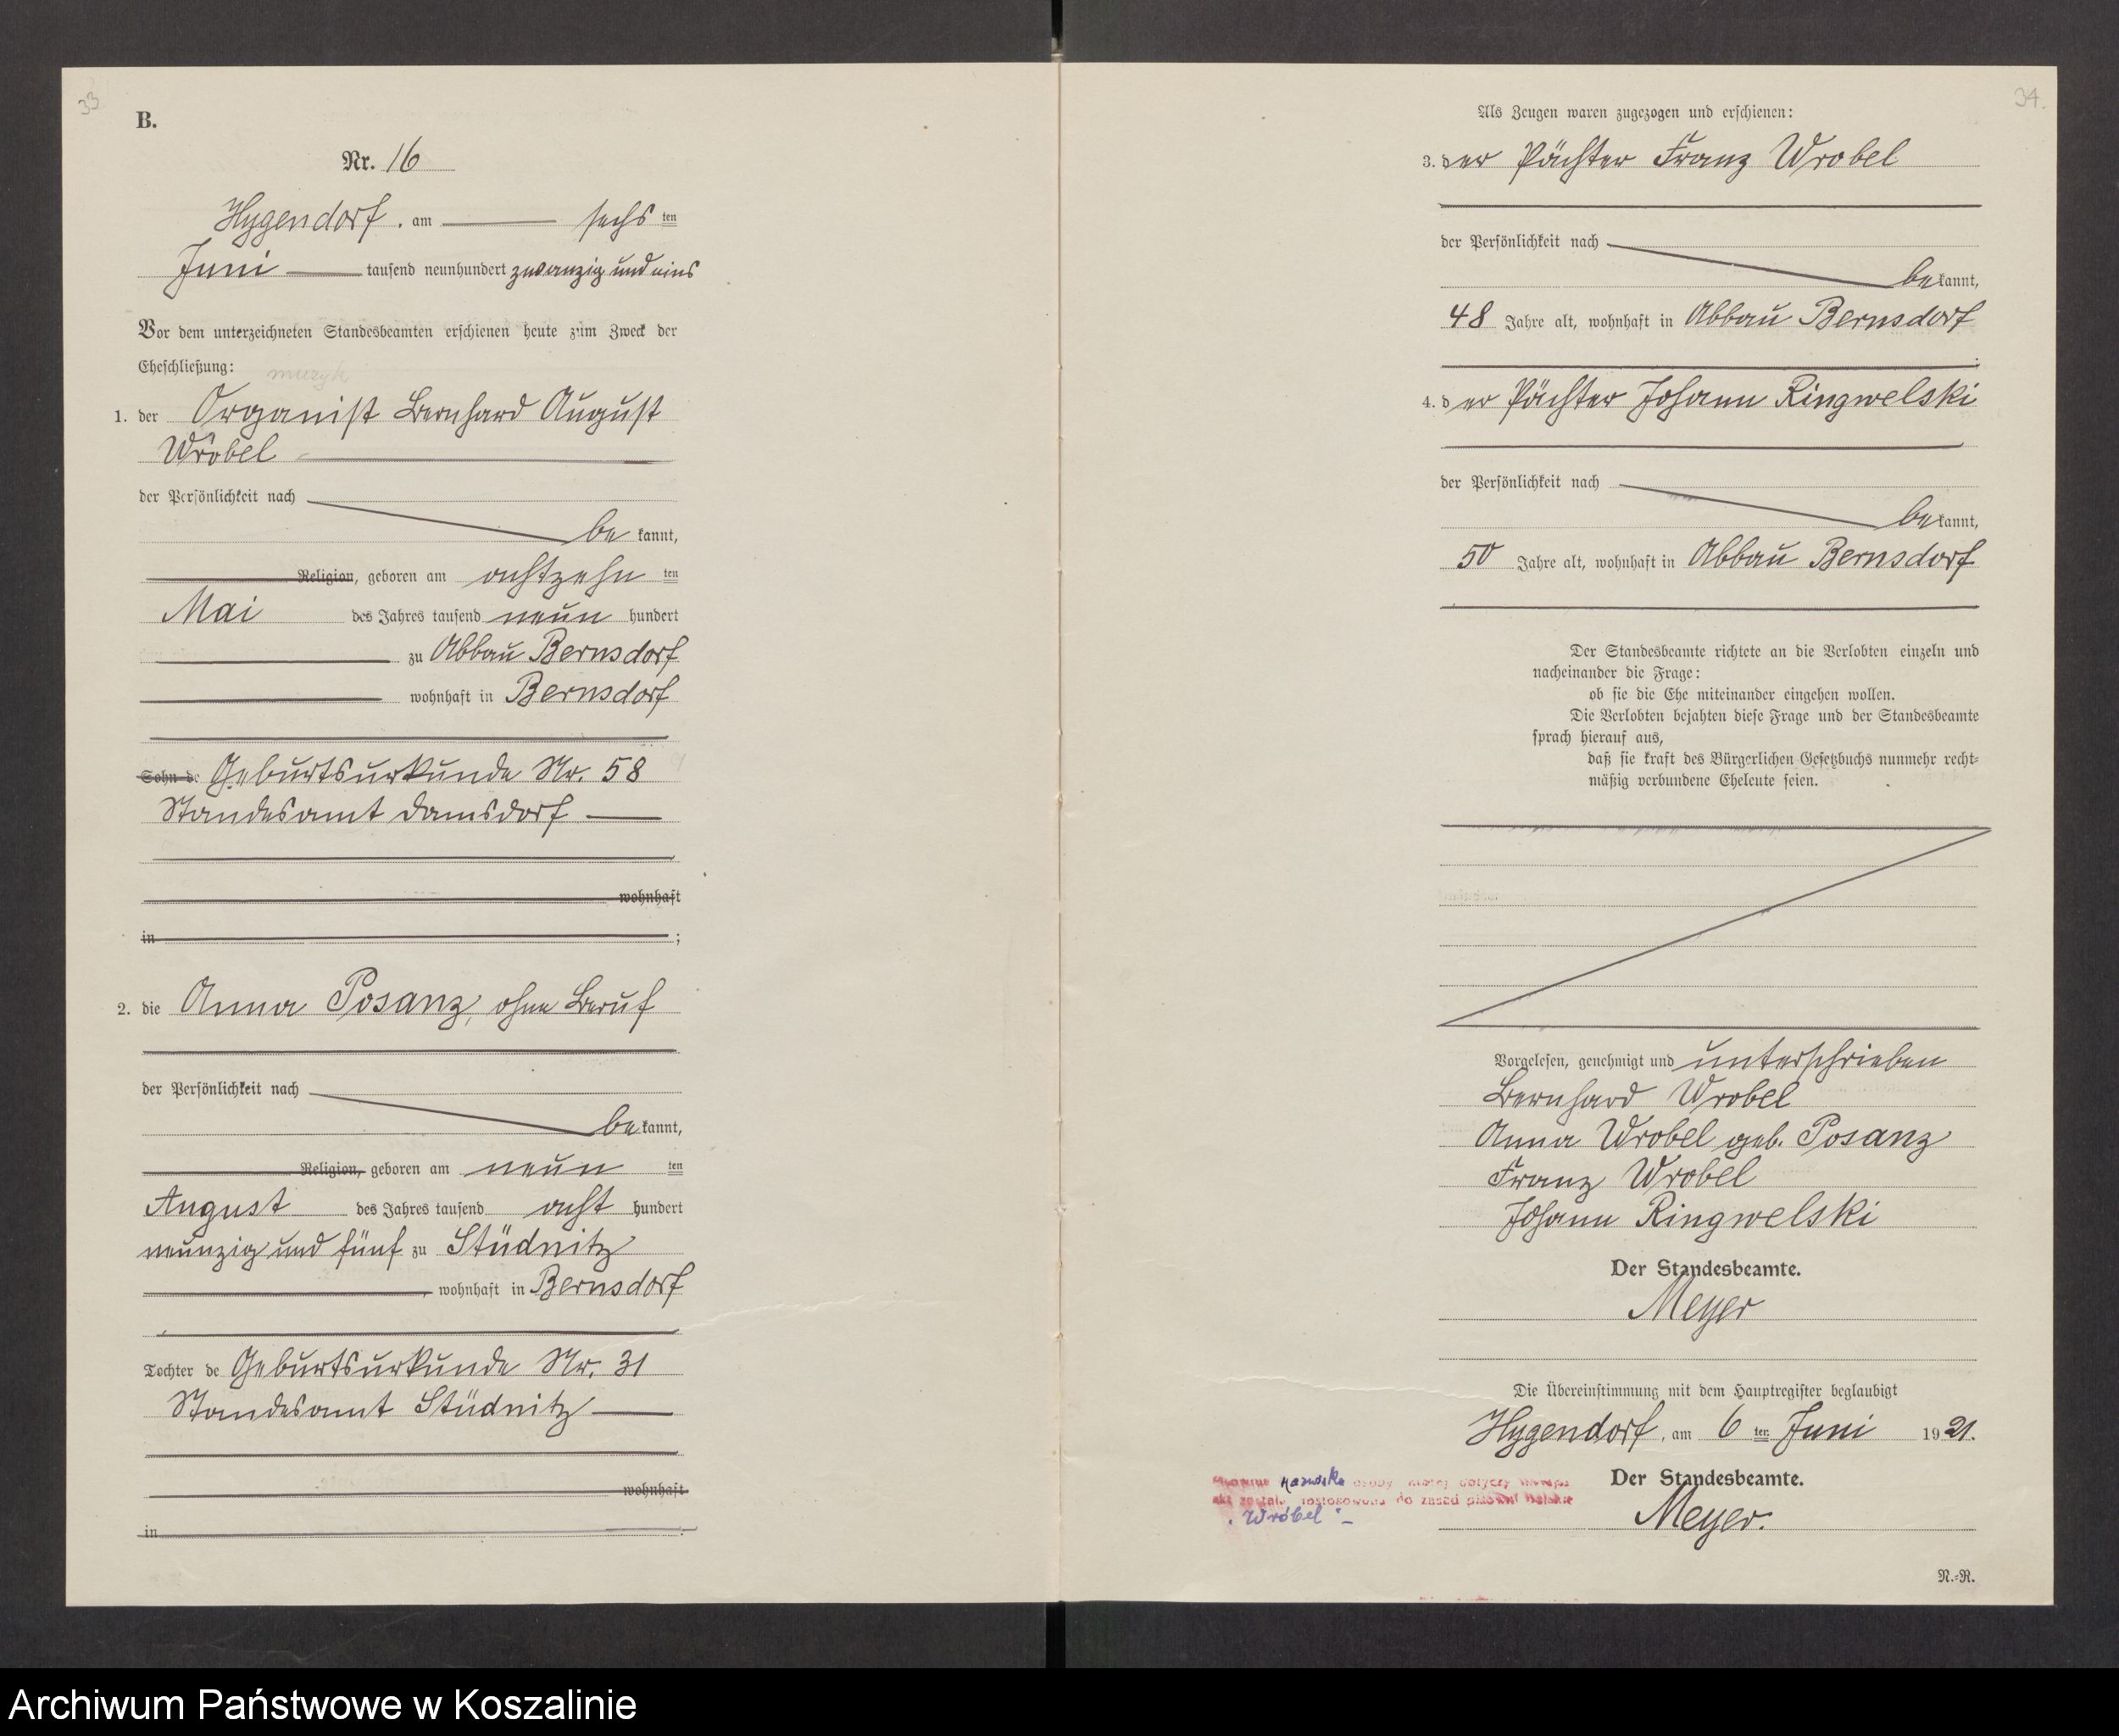 33
B.
Nr. 16
Hygendorf, am sechs ten
Juni tausend neunhundert zwanzig und eins
Vor dem unterzeichneten Standesbeamten erschienen heute zum Zweck der
Eheschließung:
muzyk
1. der Organist Bernhard August
Wróbel
der Persönlichkeit nach
be kannt,
Religion, geboren am achtzehn ten
Mai des Jahres tausend neun hundert
zu Abbau Bernsdorf
wohnhaft in Bernsdorf
Sohn de Geburtsurkunde Nr. 58
Standesamt Damsdorf
wohnhaft
in ;
2. die Anna Posanz, ohne Beruf
der Persönlichkeit nach
be kannt,
Religion, geboren am neun ten
August des Jahres tausend acht hundert
neunzig und fünf zu Stüdnitz
, wohnhaft in Bernsdorf
Tochter de Geburtsurkunde Nr. 31
Standesamt Stüdnitz
wohnhaft
in .
34.
Als Zeugen waren zugezogen und erschienen:
3. der Pächter Franz Wrobel
der Persönlichkeit nach
be kannt,
48 Jahre alt, wohnhaft in Abbau Bernsdorf
.
4. der Pächter Johann Ringwelski
der Persönlichkeit nach
be kannt,
50 Jahre alt, wohnhaft in Abbau Bernsdorf
Der Standesbeamte richtete an die Verlobten einzeln und
nacheinander die Frage:
ob sie die Ehe miteinander eingehen wollen.
Die Verlobten bejahten diese Frage und der Standesbeamte
sprach hierauf aus,
daß sie kraft des Bürgerlichen Gesetzbuchs nunmehr recht-
mäßig verbundene Eheleute seien.
Vorgelesen, genehmigt und unterschrieben
Bernhard Wrobel
Anna Wrobel geb. Posanz
Franz Wrobel
Johann Ringwelski
Der Standesbeamte.
Meyer
Die Übereinstimmung mit dem Hauptregister beglaubigt
Hygendorf, am 6 ten Juni 1921.
Der Standesbeamte.
Meyer.
nazwiska osoby której dotyczy
do zasad pisowni
"Wróbel"-
N.-R.
Archiwum Państwowe w Koszalinie